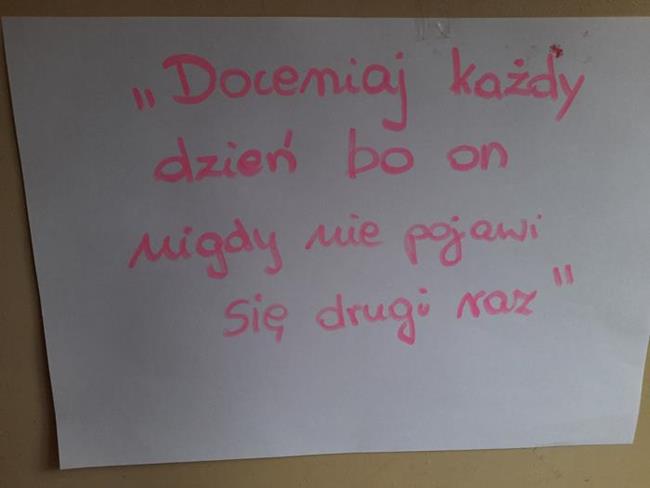 „Doceniaj każdy
dzień bo on
nigdy nie pojawi
się drugi raz"